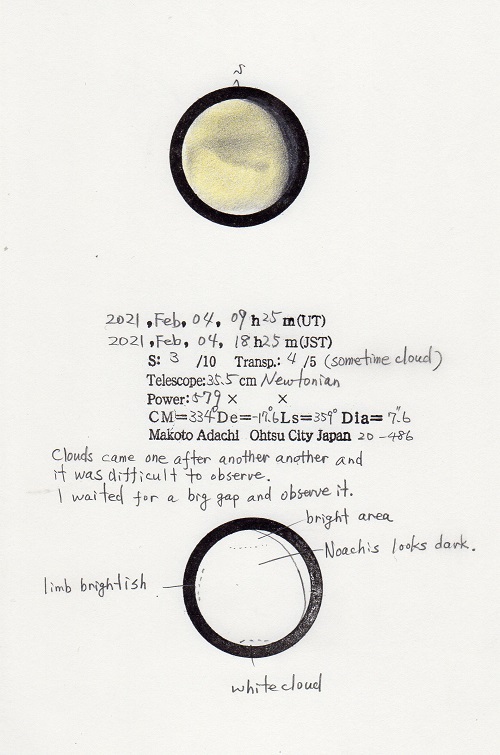 S
2021, Feb, 04, 09 h 25 m (UT)
2021, Feb, 04, 18 h 25 m (JST)
S: 3 /10 Transp.: 4 /5 (sometime cloud)
Telescope: 35.5 cm Newtonian
Power: 579 × ×
CM=334° De=-17.°6 Ls=359° Dia=7."6
Makoto Adachi Ohtsu City Japan 20-486
Clouds came one after another another and
it was difficult to observe.
I waited for a big gap and observe it.
bright area
Noachis looks dark.
limb brightish
white cloud